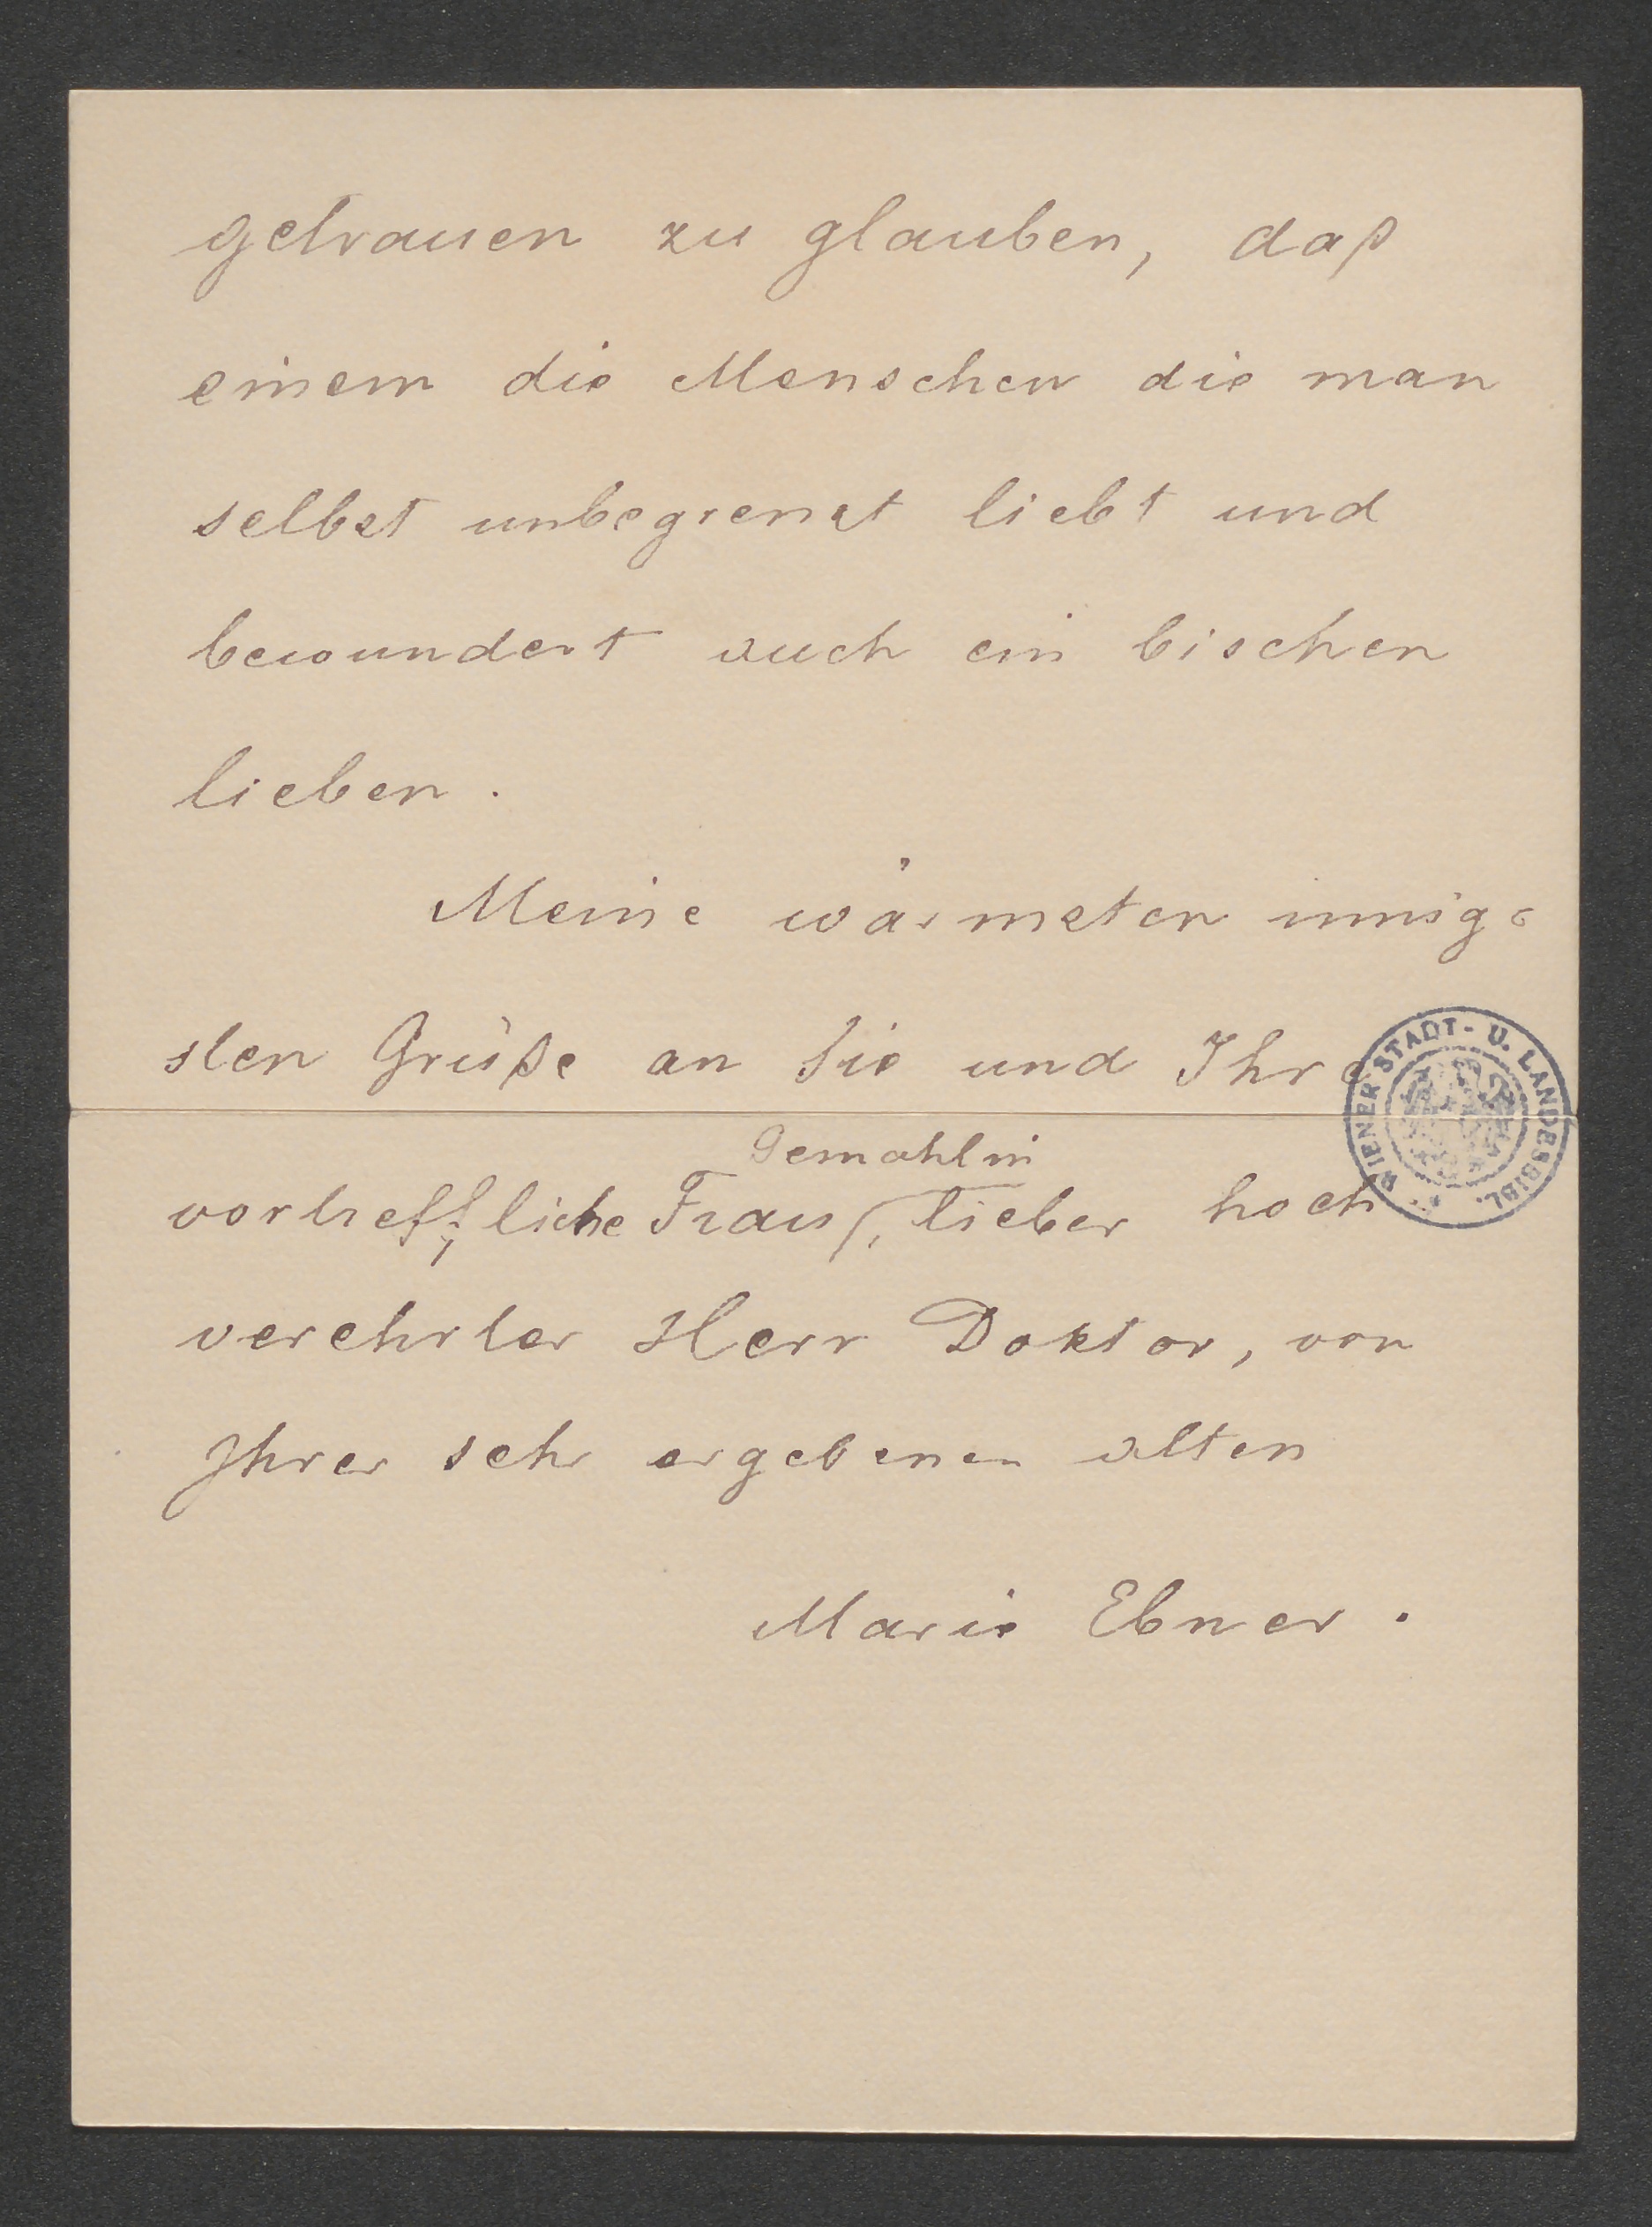 getrauen zu glauben, daß
einem die Menschen die man
selbst unbegrenzt liebt und
bewundert auch ein bischen
lieben.
Meine wärmsten innige
sten Grüße an Sie und Ihre
WIENER STADT- U. LANDESBIBL.
Gemahlin
vortreffliche Frau, lieber hoch
verehrter Herr Doktor, von
Ihrer sehr ergebenen alten
Marie Ebner.